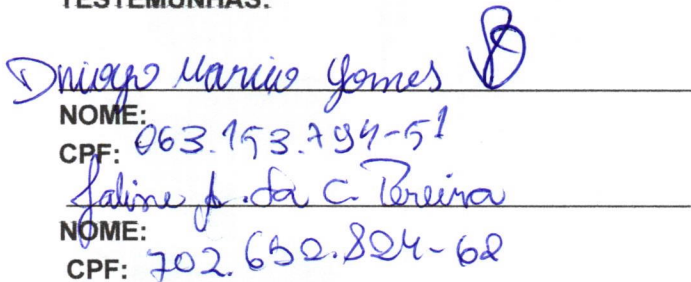 TESTEMUNHAS:
Dniogo Marico Gomes
NOME:
CPF: 063.153.794-51
Jaline da C. Pereira
NOME:
CPF: 702.652.824-62